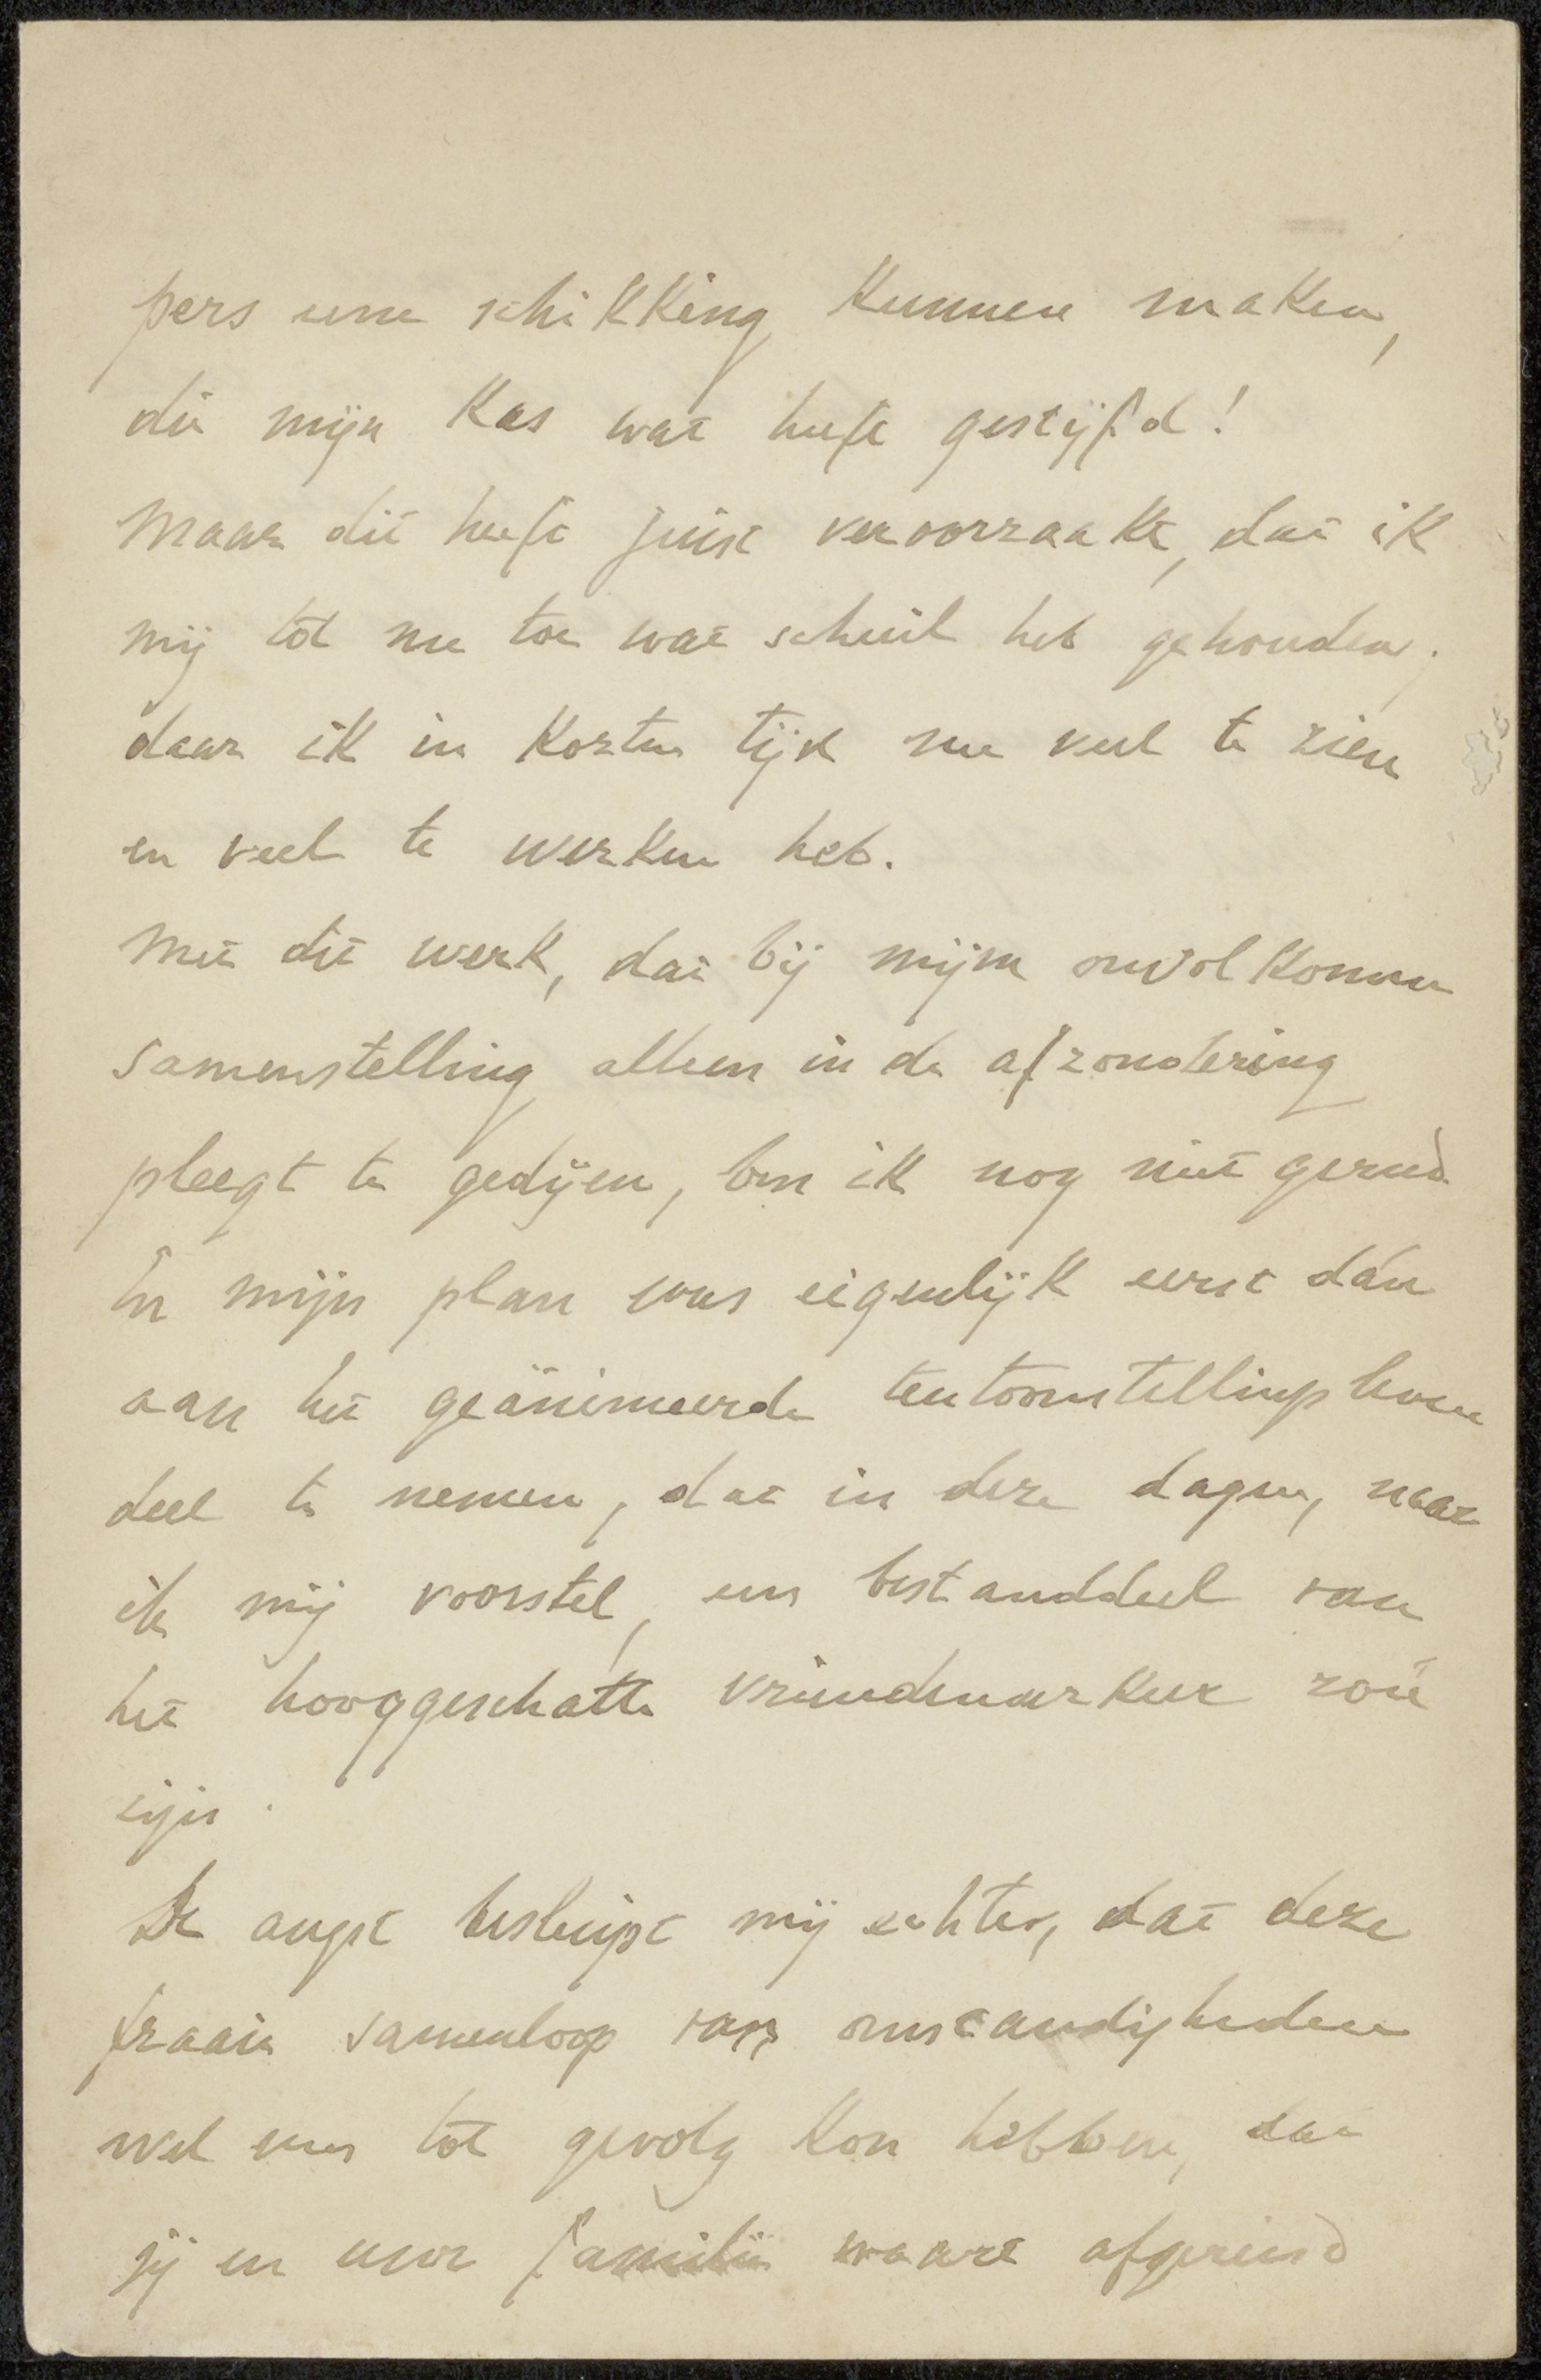 pers eene schikking kunnen maken,
die mijn kas wat heeft gestijfd!
Maar dit heeft juist veroorzaakt, dat ik
mij tot nu toe wat schuil heb gehouden,
daar ik in korten tijd nu veel te zien
en veel te werken heb.
Met dit werk, dat bij mijne onvolkomen
samenstelling alleen in de afzondering
pleegt te gedijen, ben ik nog niet gereed
En mijn plan was eigenlijk eerst dán
aan het geänimeerde tentoonstellingsleven
deel te nemen, dat in deze dagen, naar
ik mij voorstel, een bestanddeel van
het hooggeschatte vriendenverkeer zou
zijn.
De angst besluipt mij echter, dat deze
fraaie samenloop van omstandigheden
wel eens tot gevolg kon hebben, dat
jij en uwe familie waart afgereisd